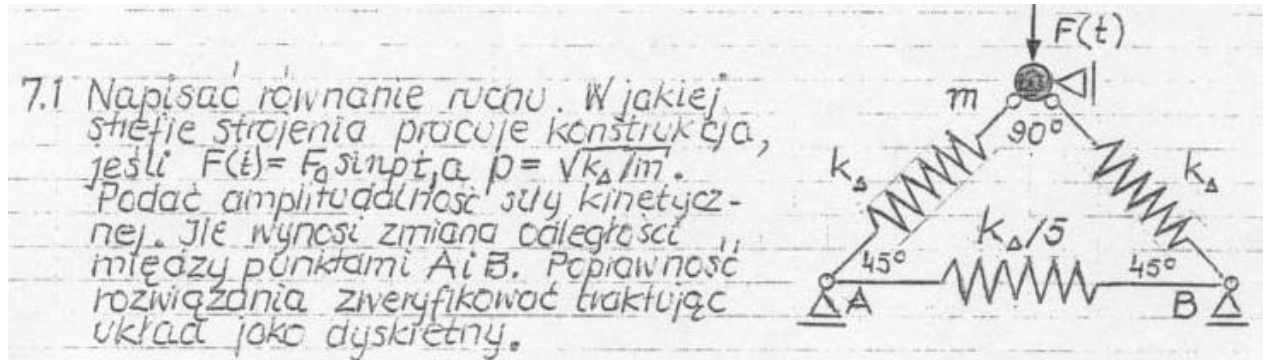 7.1 Napisać równanie ruchu. W jakiej
strefie strojenia pracuje konstrukcja,
jeśli F(t)= F₀ sinpt, a p = √k_Δ/m.
Podać amplitudalność siły kinetycz-
nej. Ile wynosi zmiana odległości
między punktami A i B. Poprawność
rozwiązania zweryfikować traktując
układ jako dyskretny.
F(t)
m
90°
k_Δ
k_Δ
k_Δ/5
45°
45°
A
B